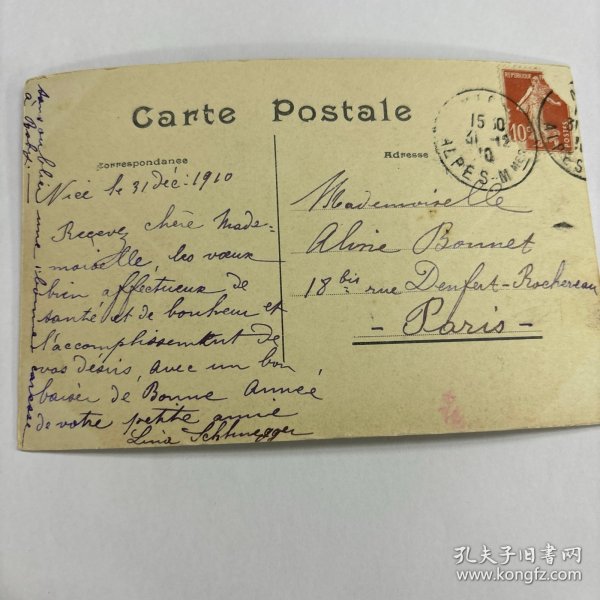 Carte Postale
Correspondance
Nice le 31 déc. 1910
Recevez chère Made=
moiselle, les vœux
bien affectueux de
santé et de bonheur et
l'accomplissement de
vos désirs, avec un bon
baiser de Bonne Année
de votre petite amie
Lina
sans oublier une bonne caresse
à
Adresse
Mademoiselle
Aline Bonnet
18 bis rue Denfert-Rochereau
- Paris -
REPUBLIQUE
10c
POSTES
NICE
15 10
31 -12
10
ALPES-Mmes
31
ALPES
孔夫子旧书网
www.kongfz.com